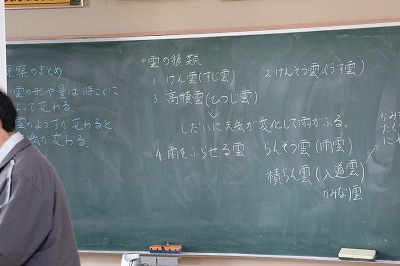 観察のまとめ
雲の形や量は時こくに
よって変わる。
雲のようすが変わると
天気が変わる。
○雲の種類
1. けん雲(すじ雲)
2. けんそう雲(うす雲)
3. 高積雲(ひつじ雲)
↓
しだいに天気が変化して雨がふる。
4. 雨をふらせる雲
らんそう雲(雨雲)
積らん雲(入道雲)
かみなり雲
かみ
たく
に